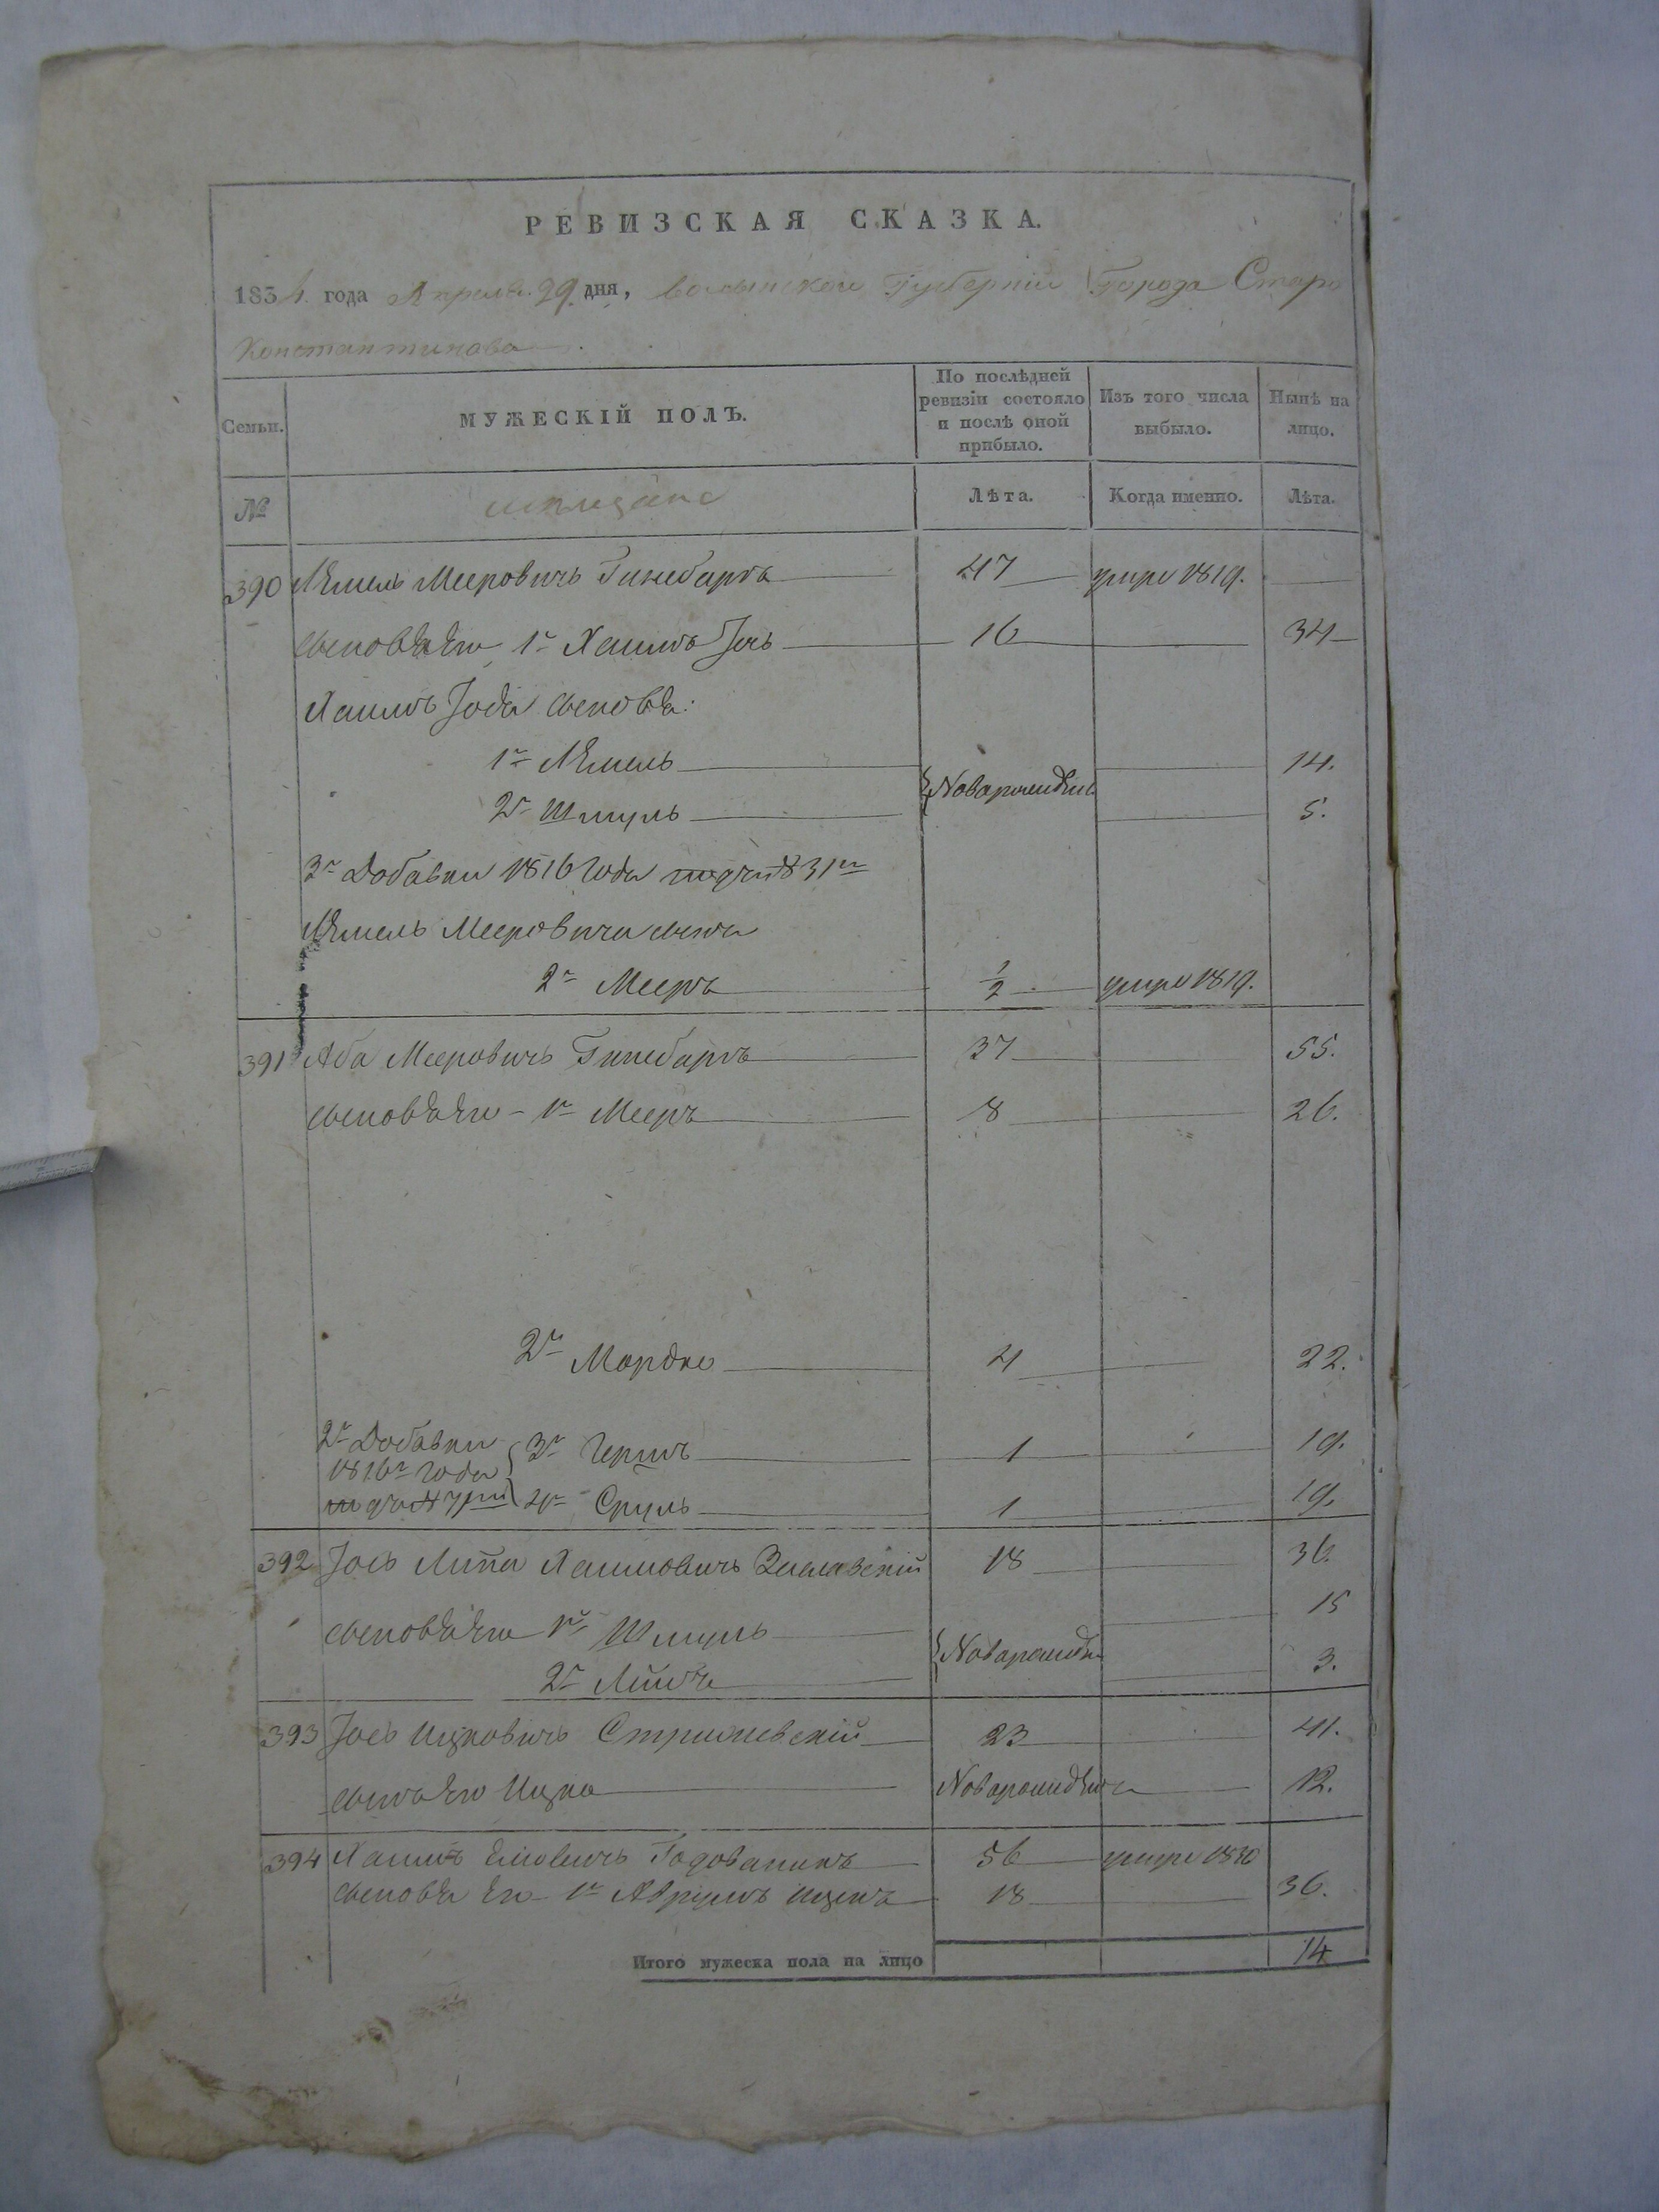 РЕВИЗСКАЯ СКАЗКА.
1834 года Апреля 29 дня, Волынской Губернии Города Старо
Константинова
Семьи.
МУЖЕСКІЙ ПОЛЪ.
По послѣдней ревизіи состояло и послѣ оной прибыло.
Изъ того числа выбыло.
Нынѣ на лицо.
№
мѣщане
Лѣта.
Когда именно.
Лѣта.
390 Лѣмель Мееровичъ 47 умре 1819.
сыновья Его 1й Хаимъ Іось 16 34
Хаимъ Іося сыновья:
1й Лѣмель Новорожденые 14.
2й Шмуль 5.
3й Добавки 1816 года 31
Лѣмель Мееровича сынъ
2й Мееръ 1/2 умре 1819.
391 Аба Мееровичъ 37 55.
сыновья Его - 1й Мееръ 8 26.
2й Мордко 4 22.
2й Добавки 1816й года
3й Гершъ 1 19.
4й Сруль 1 19.
392 Іось Липа Хаимовичъ Заславскій 18 36.
сыновья Его 1й Шмуль Новорожденые 15
2й 3.
393 Іось Ицковичъ Стрижевскій 23 41.
сынъ Его Ицко Новорожденый 12.
394 Хаимъ Годованикъ 56 умре 1830
сыновья Его 1й Аврумъ Ицикъ 18 36.
Итого мужеска пола на лицо 14